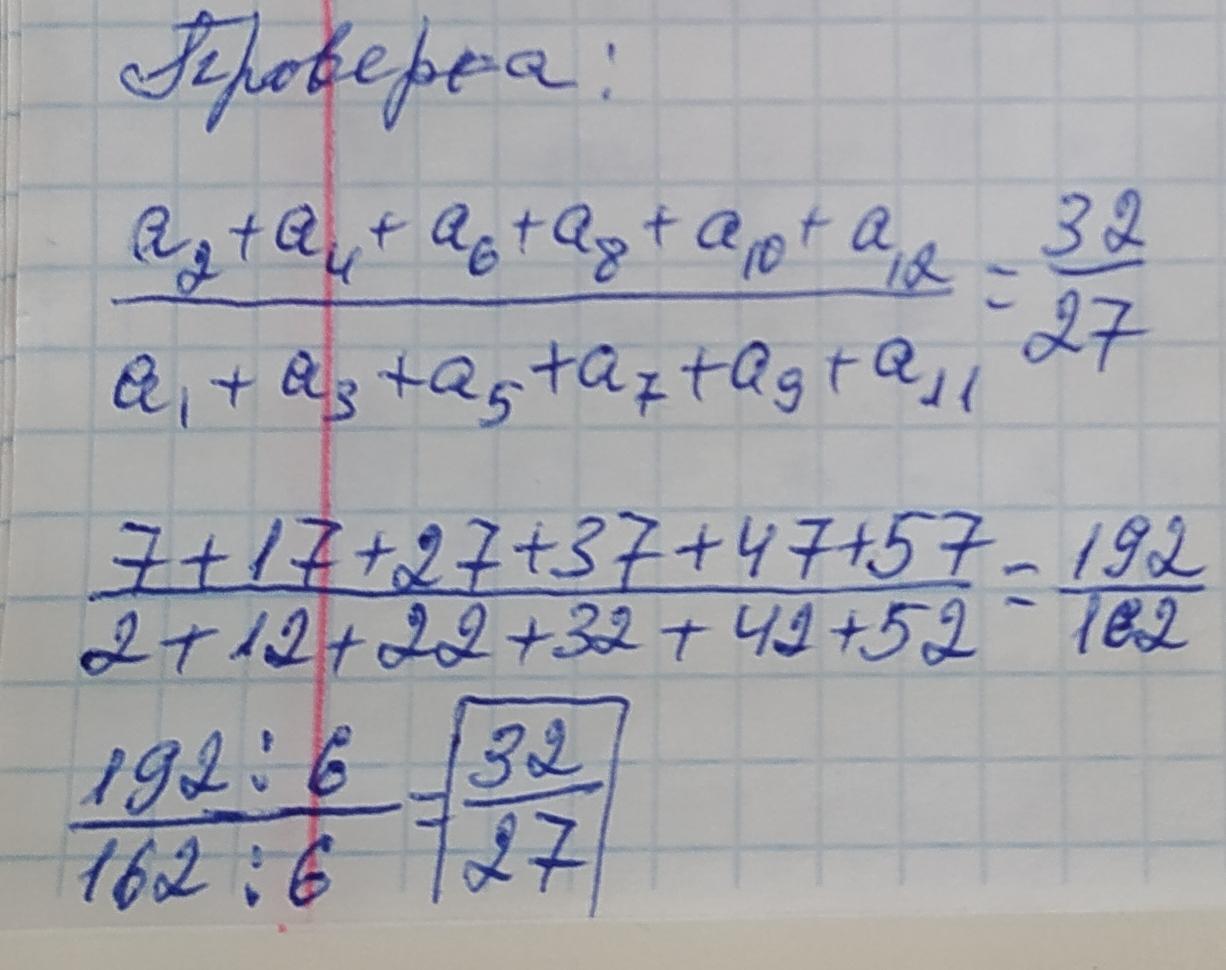 Проверка:
a₂ + a₄ + a₆ + a₈ + a₁₀ + a₁₂ = 32
a₁ + a₃ + a₅ + a₇ + a₉ + a₁₁ 27
7 + 17 + 27 + 37 + 47 + 57 = 192
2 + 12 + 22 + 32 + 42 + 52 162
192 : 6 = 32
162 : 6 27